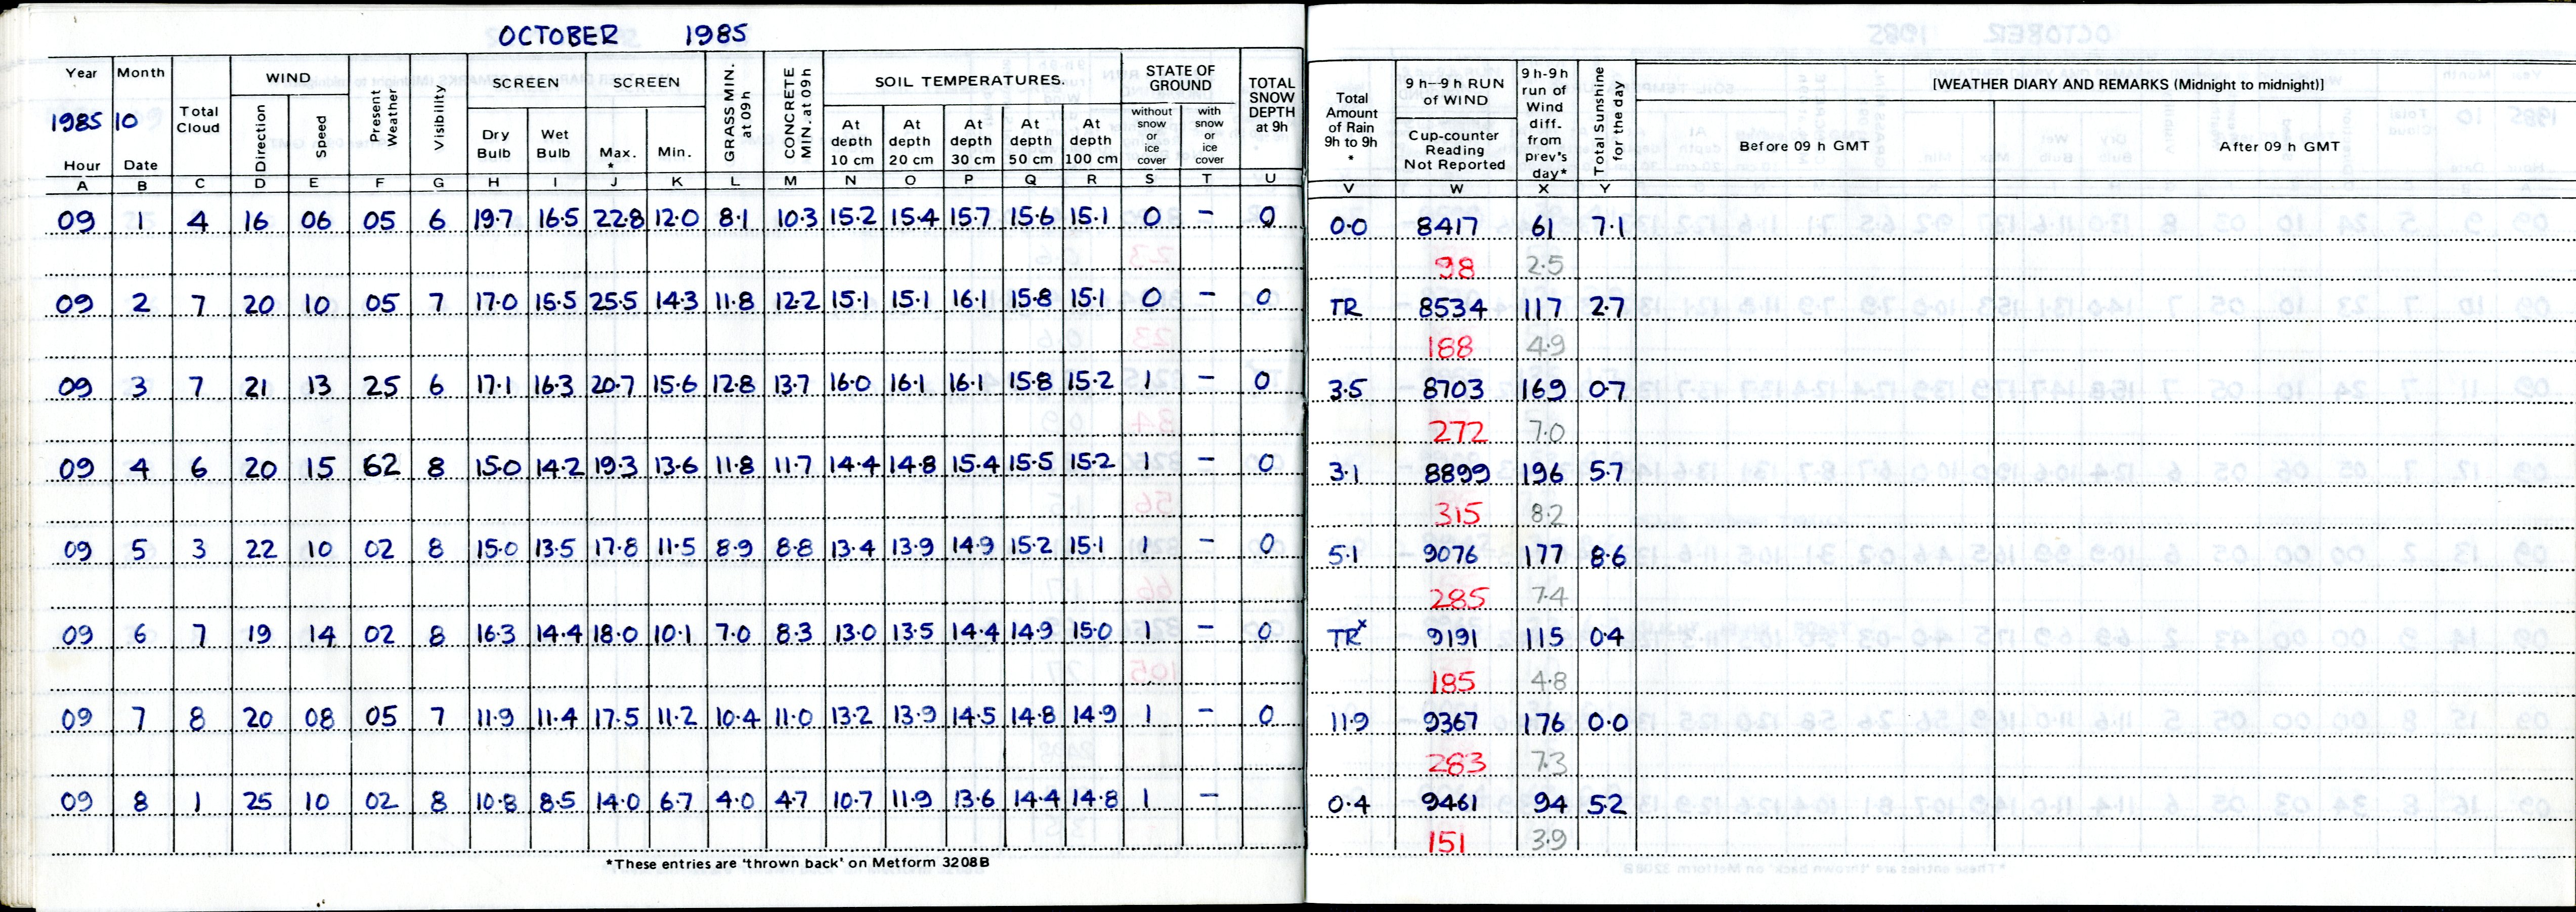 OCTOBER 1985
Year Month Total Cloud WIND Present Weather Visibility SCREEN SCREEN GRASS MIN. at 09h CONCRETE MIN. at 09h SOIL TEMPERATURES. STATE OF GROUND TOTAL SNOW DEPTH at 9h Total Amount of Rain 9h to 9h * 9h–9h RUN of WIND 9h–9h run of Wind diff. from prev's day* Total Sunshine for the day [WEATHER DIARY AND REMARKS (Midnight to midnight)]
1985 10 Direction Speed Dry Bulb Wet Bulb Max. * Min. At depth 10 cm At depth 20 cm At depth 30 cm At depth 50 cm At depth 100 cm without snow or ice cover with snow or ice cover Cup-counter Reading Not Reported Before 09 h GMT After 09 h GMT
Hour Date
A B C D E F G H I J K L M N O P Q R S T U V W X Y
09 1 4 16 06 05 6 19.7 16.5 22.8 12.0 8.1 10.3 15.2 15.4 15.7 15.6 15.1 0 – 0 0.0 8417 61 7.1
98 2.5
09 2 7 20 10 05 7 17.0 15.5 25.5 14.3 11.8 12.2 15.1 15.1 16.1 15.8 15.1 0 – 0 TR 8534 117 2.7
188 4.9
09 3 7 21 13 25 6 17.1 16.3 20.7 15.6 12.8 13.7 16.0 16.1 16.1 15.8 15.2 1 – 0 3.5 8703 169 0.7
272 7.0
09 4 6 20 15 62 8 15.0 14.2 19.3 13.6 11.8 11.7 14.4 14.8 15.4 15.5 15.2 1 – 0 3.1 8899 196 5.7
315 8.2
09 5 3 22 10 02 8 15.0 13.5 17.8 11.5 8.9 8.8 13.4 13.9 14.9 15.2 15.1 1 – 0 5.1 9076 177 8.6
285 7.4
09 6 7 19 14 02 8 16.3 14.4 18.0 10.1 7.0 8.3 13.0 13.5 14.4 14.9 15.0 1 – 0 TRx 9191 115 0.4
185 4.8
09 7 8 20 08 05 7 11.9 11.4 17.5 11.2 10.4 11.0 13.2 13.9 14.5 14.8 14.9 1 – 0 11.9 9367 176 0.0
283 7.3
09 8 1 25 10 02 8 10.8 8.5 14.0 6.7 4.0 4.7 10.7 11.9 13.6 14.4 14.8 1 – 0.4 9461 94 5.2
151 3.9
*These entries are 'thrown back' on Metform 3208B